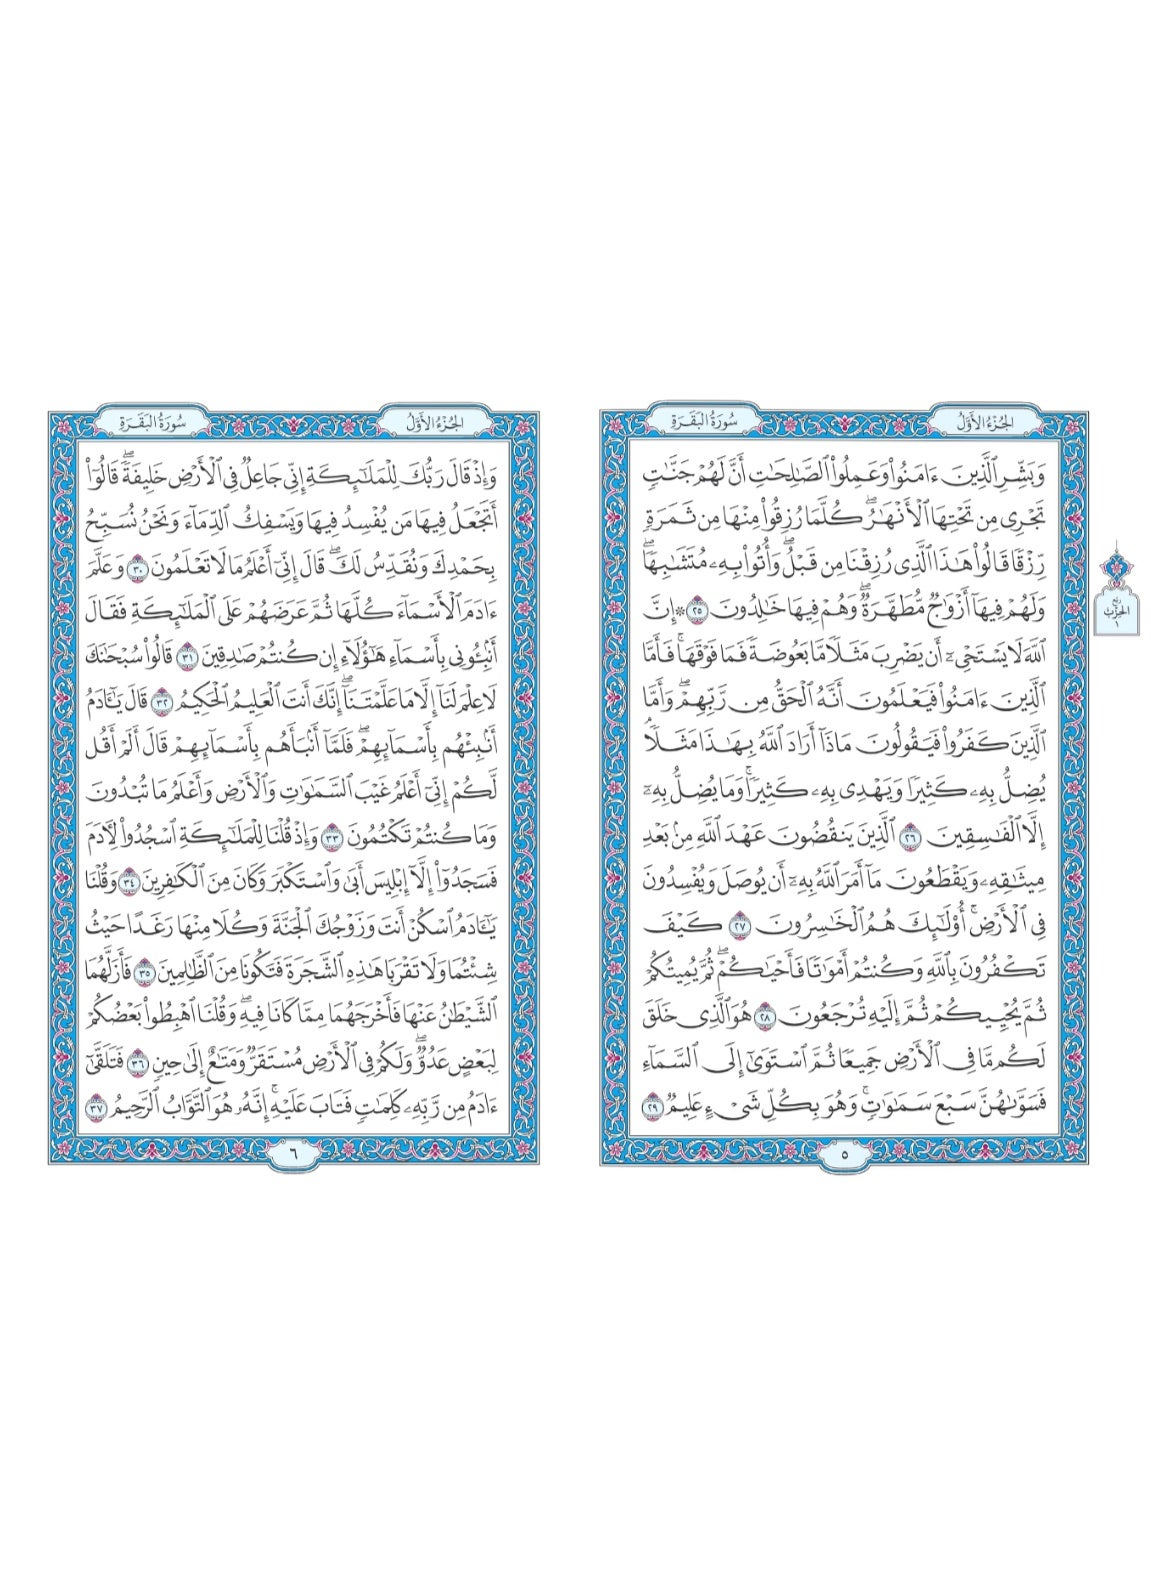 الجُزْءُ الأَوَّلُ
سُورَةُ البَقَرَةِ
وَبَشِّرِ ٱلَّذِينَ ءَامَنُوا۟ وَعَمِلُوا۟ ٱلصَّٰلِحَٰتِ أَنَّ لَهُمْ جَنَّٰتٍ
تَجْرِى مِن تَحْتِهَا ٱلْأَنْهَٰرُ ۖ كُلَّمَا رُزِقُوا۟ مِنْهَا مِن ثَمَرَةٍ
رِّزْقًا قَالُوا۟ هَٰذَا ٱلَّذِى رُزِقْنَا مِن قَبْلُ ۖ وَأُتُوا۟ بِهِۦ مُتَشَٰبِهًا ۖ
وَلَهُمْ فِيهَآ أَزْوَٰجٌ مُّطَهَّرَةٌ ۖ وَهُمْ فِيهَا خَٰلِدُونَ ٢٥ ۞ إِنَّ
ٱللَّهَ لَا يَسْتَحْىِۦٓ أَن يَضْرِبَ مَثَلًا مَّا بَعُوضَةً فَمَا فَوْقَهَا ۚ فَأَمَّا
ٱلَّذِينَ ءَامَنُوا۟ فَيَعْلَمُونَ أَنَّهُ ٱلْحَقُّ مِن رَّبِّهِمْ ۖ وَأَمَّا
ٱلَّذِينَ كَفَرُوا۟ فَيَقُولُونَ مَاذَآ أَرَادَ ٱللَّهُ بِهَٰذَا مَثَلًا ۘ
يُضِلُّ بِهِۦ كَثِيرًا وَيَهْدِى بِهِۦ كَثِيرًا ۚ وَمَا يُضِلُّ بِهِۦٓ
إِلَّا ٱلْفَٰسِقِينَ ٢٦ ٱلَّذِينَ يَنقُضُونَ عَهْدَ ٱللَّهِ مِنۢ بَعْدِ
مِيثَٰقِهِۦ وَيَقْطَعُونَ مَآ أَمَرَ ٱللَّهُ بِهِۦٓ أَن يُوصَلَ وَيُفْسِدُونَ
فِى ٱلْأَرْضِ ۚ أُو۟لَٰٓئِكَ هُمُ ٱلْخَٰسِرُونَ ٢٧ كَيْفَ
تَكْفُرُونَ بِٱللَّهِ وَكُنتُمْ أَمْوَٰتًا فَأَحْيَٰكُمْ ۖ ثُمَّ يُمِيتُكُمْ
ثُمَّ يُحْيِيكُمْ ثُمَّ إِلَيْهِ تُرْجَعُونَ ٢٨ هُوَ ٱلَّذِى خَلَقَ
لَكُم مَّا فِى ٱلْأَرْضِ جَمِيعًا ثُمَّ ٱسْتَوَىٰٓ إِلَى ٱلسَّمَآءِ
فَسَوَّىٰهُنَّ سَبْعَ سَمَٰوَٰتٍ ۚ وَهُوَ بِكُلِّ شَىْءٍ عَلِيمٌ ٢٩
٥
ربع
الحزب
١
الجُزْءُ الأَوَّلُ
سُورَةُ البَقَرَةِ
وَإِذْ قَالَ رَبُّكَ لِلْمَلَٰٓئِكَةِ إِنِّى جَاعِلٌ فِى ٱلْأَرْضِ خَلِيفَةً ۖ قَالُوٓا۟
أَتَجْعَلُ فِيهَا مَن يُفْسِدُ فِيهَا وَيَسْفِكُ ٱلدِّمَآءَ وَنَحْنُ نُسَبِّحُ
بِحَمْدِكَ وَنُقَدِّسُ لَكَ ۖ قَالَ إِنِّىٓ أَعْلَمُ مَا لَا تَعْلَمُونَ ٣٠ وَعَلَّمَ
ءَادَمَ ٱلْأَسْمَآءَ كُلَّهَا ثُمَّ عَرَضَهُمْ عَلَى ٱلْمَلَٰٓئِكَةِ فَقَالَ
أَنۢبِـُٔونِى بِأَسْمَآءِ هَٰٓؤُلَآءِ إِن كُنتُمْ صَٰدِقِينَ ٣١ قَالُوا۟ سُبْحَٰنَكَ
لَا عِلْمَ لَنَآ إِلَّا مَا عَلَّمْتَنَآ ۖ إِنَّكَ أَنتَ ٱلْعَلِيمُ ٱلْحَكِيمُ ٣٢ قَالَ يَٰٓـَٔادَمُ
أَنۢبِئْهُم بِأَسْمَآئِهِمْ ۖ فَلَمَّآ أَنۢبَأَهُم بِأَسْمَآئِهِمْ قَالَ أَلَمْ أَقُل
لَّكُمْ إِنِّىٓ أَعْلَمُ غَيْبَ ٱلسَّمَٰوَٰتِ وَٱلْأَرْضِ وَأَعْلَمُ مَا تُبْدُونَ
وَمَا كُنتُمْ تَكْتُمُونَ ٣٣ وَإِذْ قُلْنَا لِلْمَلَٰٓئِكَةِ ٱسْجُدُوا۟ لِـَٔادَمَ
فَسَجَدُوٓا۟ إِلَّآ إِبْلِيسَ أَبَىٰ وَٱسْتَكْبَرَ وَكَانَ مِنَ ٱلْكَٰفِرِينَ ٣٤ وَقُلْنَا
يَٰٓـَٔادَمُ ٱسْكُنْ أَنتَ وَزَوْجُكَ ٱلْجَنَّةَ وَكُلَا مِنْهَا رَغَدًا حَيْثُ
شِئْتُمَا وَلَا تَقْرَبَا هَٰذِهِ ٱلشَّجَرَةَ فَتَكُونَا مِنَ ٱلظَّٰلِمِينَ ٣٥ فَأَزَلَّهُمَا
ٱلشَّيْطَٰنُ عَنْهَا فَأَخْرَجَهُمَا مِمَّا كَانَا فِيهِ ۖ وَقُلْنَا ٱهْبِطُوا۟ بَعْضُكُمْ
لِبَعْضٍ عَدُوٌّ ۖ وَلَكُمْ فِى ٱلْأَرْضِ مُسْتَقَرٌّ وَمَتَٰعٌ إِلَىٰ حِينٍ ٣٦ فَتَلَقَّىٰٓ
ءَادَمُ مِن رَّبِّهِۦ كَلِمَٰتٍ فَتَابَ عَلَيْهِ ۚ إِنَّهُۥ هُوَ ٱلتَّوَّابُ ٱلرَّحِيمُ ٣٧
٦